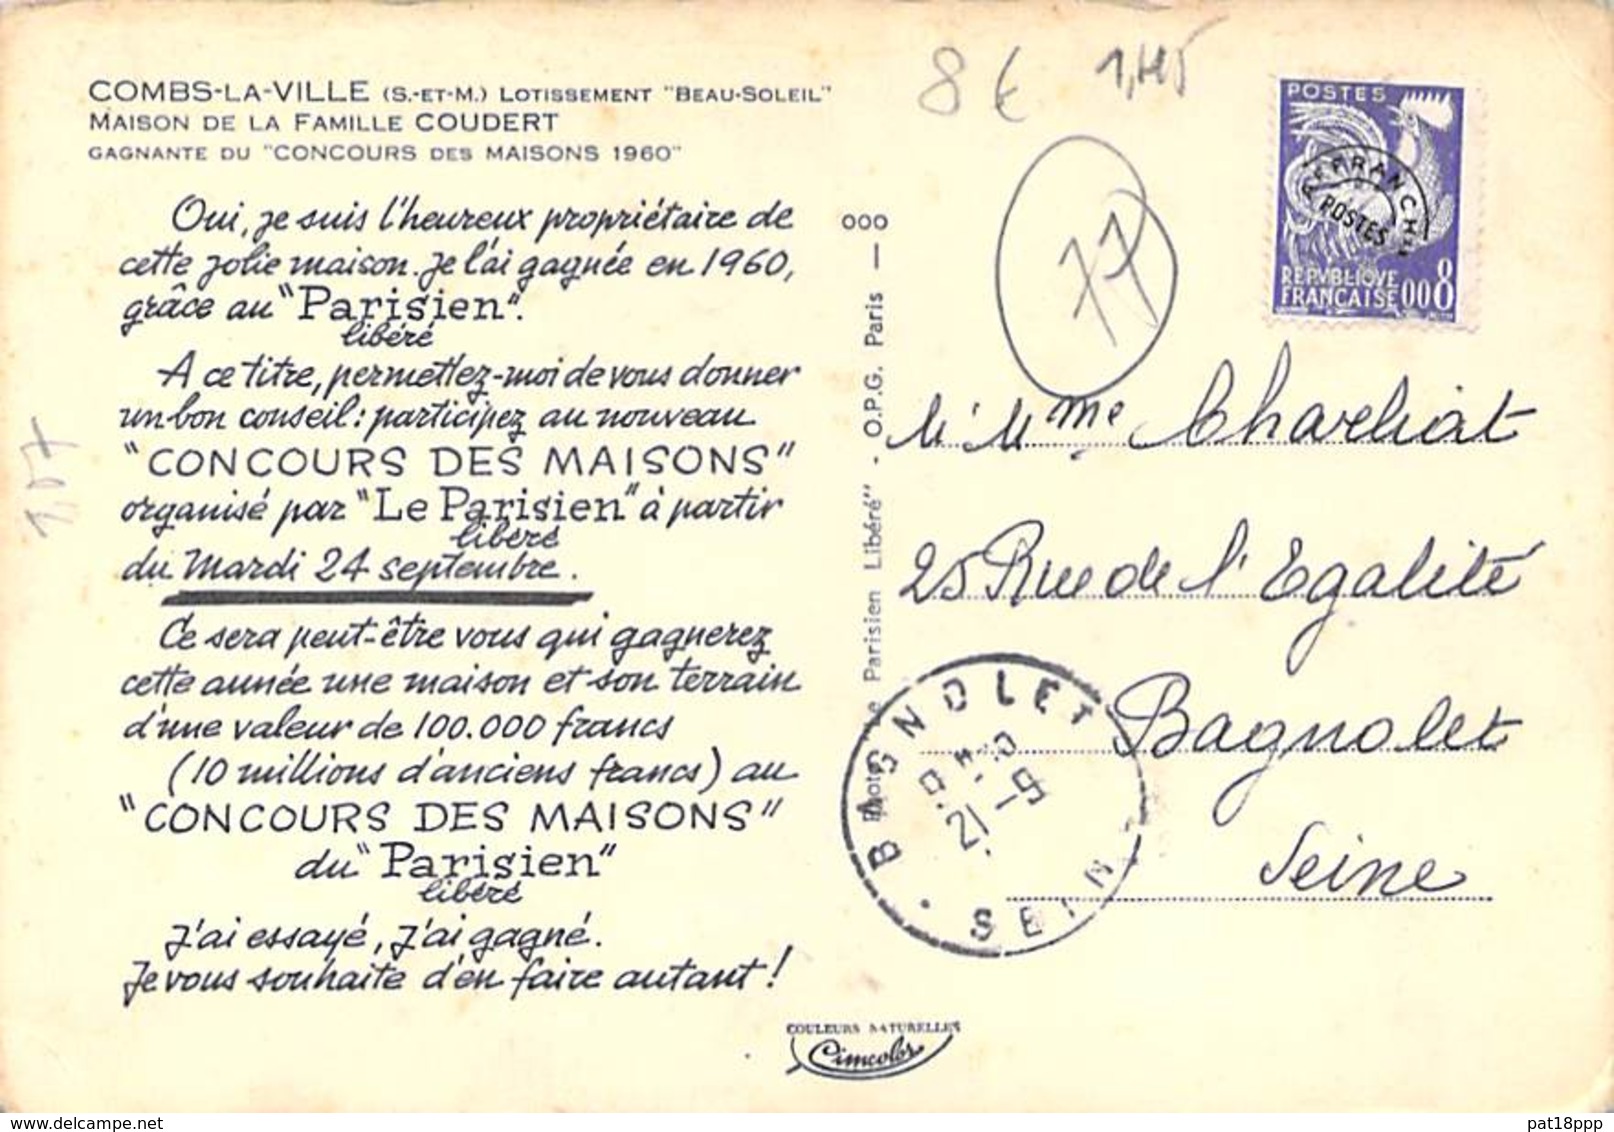 COMBS-LA-VILLE (S.-ET-M.) LOTISSEMENT "BEAU-SOLEIL"
MAISON DE LA FAMILLE COUDERT
GAGNANTE DU "CONCOURS DES MAISONS 1960"
Oui, je suis l'heureux propriétaire de
cette jolie maison. Je l'ai gagnée en 1960,
grâce au "Parisien".
libéré
A ce titre, permettez-moi de vous donner
un bon conseil : participez au nouveau
"CONCOURS DES MAISONS"
organisé par "Le Parisien" à partir
libéré
du Mardi 24 septembre.
Ce sera peut-être vous qui gagnerez
cette année une maison et son terrain
d'une valeur de 100.000 francs
(10 millions d'anciens francs) au
"CONCOURS DES MAISONS"
du "Parisien"
libéré
J'ai essayé, J'ai gagné.
Je vous souhaite d'en faire autant !
207
COULEURS NATURELLES
Cimcolor
000
Photo "Le Parisien Libéré" - O.P.G. Paris —
8 €
77
POSTES
AFFRANCHts
POSTES
REPVBLIQVE
FRANÇAISE 008
M. Mme Charliat
25 Rue de l'Egalité
Bagnolet
Seine
BAGNOLET
21 - 9
SEIN
https://www.delcampe.net
pat18ppp